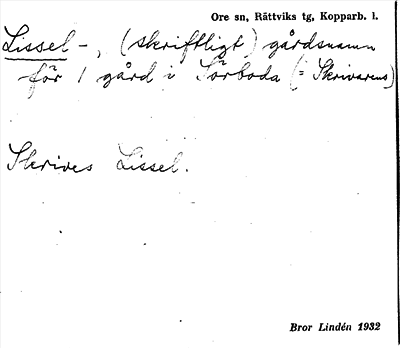 Ore sn, Rättviks tg, Kopparb. l.
Lissel-, (skriftligt) gårdsnamn
för 1 gård i Sörboda (= Skrivarens)
Skrives Lissel.
Bror Lindén 1932